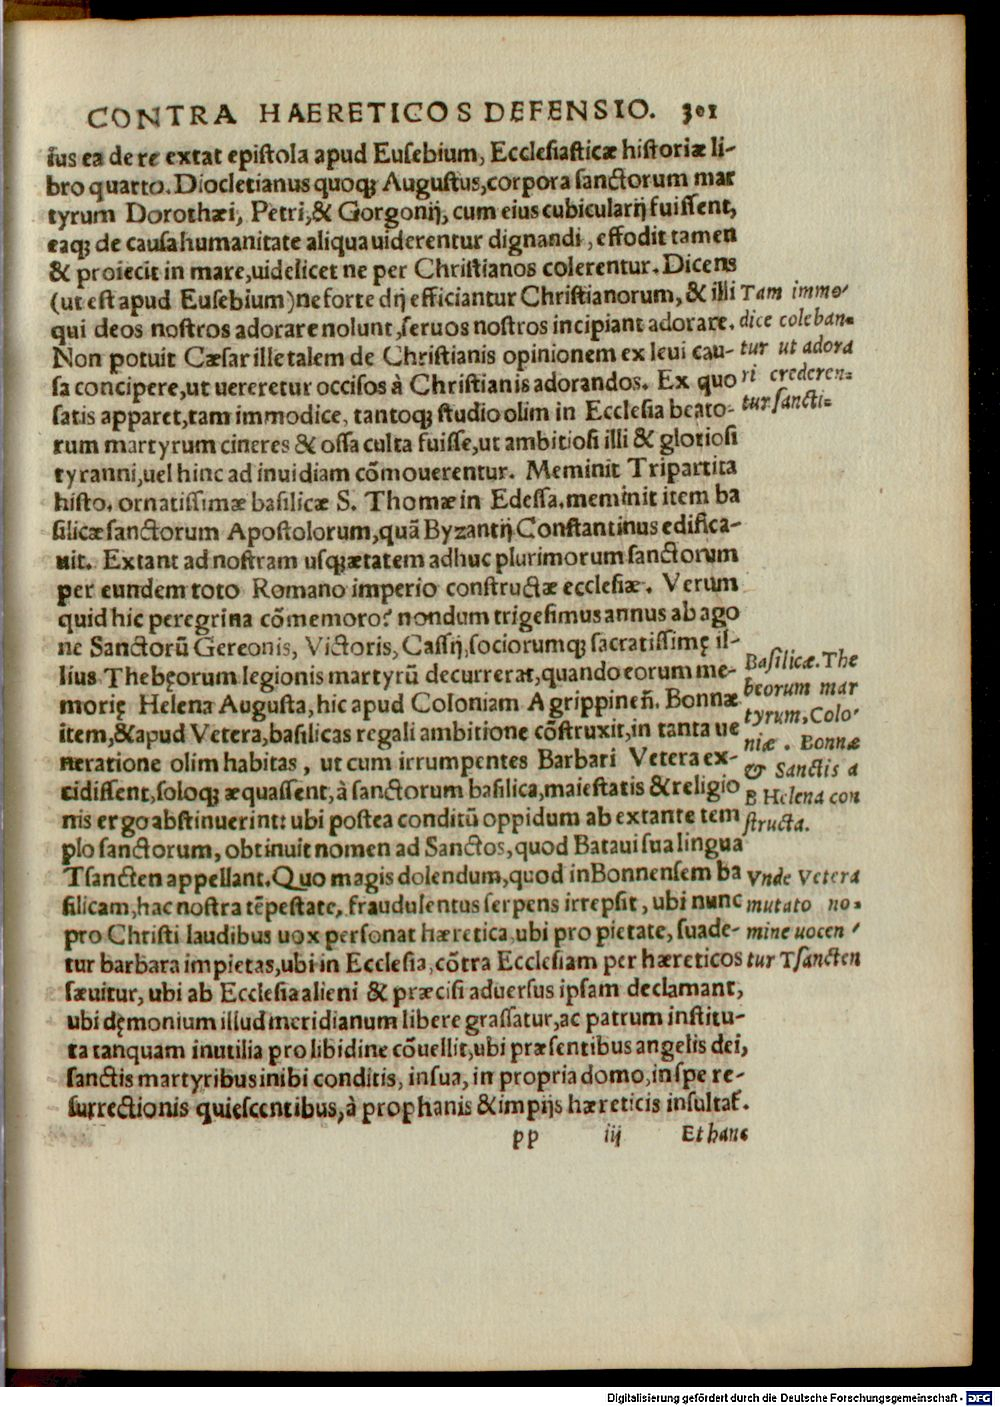 CONTRA HAERETICOS DEFENSIO. 301
ius ea de re extat epistola apud Eusebium, Ecclesiasticæ historiæ li-
bro quarto. Diocletianus quoqꝫ Augustus, corpora sanctorum mar
tyrum Dorothæi, Petri, & Gorgonij, cum eius cubicularij fuissent,
eaqꝫ de causa humanitate aliqua uiderentur dignandi, effodit tamen
& proiecit in mare, uidelicet ne per Christianos colerentur. Dicens
(ut est apud Eusebium) ne forte dij efficiantur Christianorum, & illi
qui deos nostros adorare nolunt, seruos nostros incipiant adorare.
Non potuit Cæsar ille talem de Christianis opinionem ex leui cau-
sa concipere, ut uereretur occisos à Christianis adorandos. Ex quo
satis apparet, tam immodice, tantoqꝫ studio olim in Ecclesia beato-
rum martyrum cineres & ossa culta fuisse, ut ambitiosi illi & gloriosi
tyranni, uel hinc ad inuidiam cõmouerentur. Meminit Tripartita
histo. ornatissimæ basilicæ S. Thomæ in Edessa. meminit item ba
silicæ sanctorum Apostolorum, quã Byzantij Constantinus edifica-
uit. Extant ad nostram usqꝫ ætatem adhuc plurimorum sanctorum
per eundem toto Romano imperio constructæ ecclesiæ. Verum
quid hic peregrina cõmemoro? nondum trigesimus annus ab ago
ne Sanctorũ Gereonis, Victoris, Cassij, sociorumqꝫ sacratissimę il-
lius Thebęorum legionis martyrũ decurrerat, quando eorum me-
morię Helena Augusta, hic apud Coloniam Agrippineñ. Bonnæ
item, & apud Vetera, basilicas regali ambitione cõstruxit, in tanta ue
neratione olim habitas, ut cum irrumpentes Barbari Vetera ex-
cidissent, soloqꝫ æquassent, à sanctorum basilica, maiestatis & religio
nis ergo abstinuerint: ubi postea conditũ oppidum ab extante tem
plo sanctorum, obtinuit nomen ad Sanctos, quod Bataui sua lingua
Tsancten appellant. Quo magis dolendum, quod in Bonnensem ba
silicam, hac nostra tẽpestate, fraudulentus serpens irrepsit, ubi nunc
pro Christi laudibus uox personat hæretica, ubi pro pietate, suade-
tur barbara impietas, ubi in Ecclesia, cõtra Ecclesiam per hæreticos
sæuitur, ubi ab Ecclesia alieni & præcisi aduersus ipsam declamant,
ubi dęmonium illud meridianum libere grassatur, ac patrum institu-
ta tanquam inutilia pro libidine cõuellit, ubi præsentibus angelis dei,
sanctis martyribus inibi conditis, in sua, in propria domo, in spe re-
surrectionis quiescentibus, à prophanis & impijs hæreticis insultat̃.
pp iij Et hanc
Tam immo-
dice coleban-
tur ut adora
ri crederen-
tur sancti-
Basilicæ. The
beorum mar
tyrum, Colo-
niæ. Bonnæ
& Sanctis a
B Helena con
structa.
Vnde Vetera
mutato no-
mine uocen-
tur Tsancten
Digitalisierung gefördert durch die Deutsche Forschungsgemeinschaft - DFG